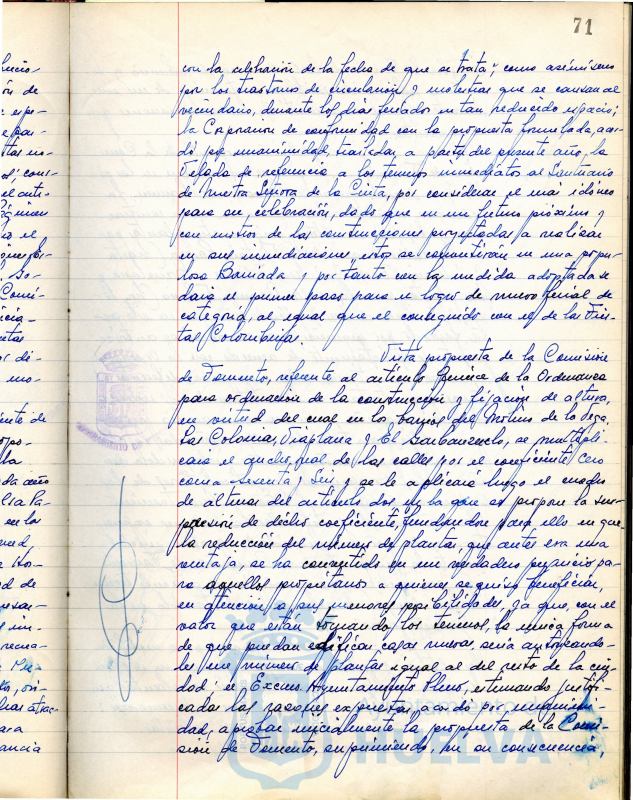 71
con la celebración de la fecha de que se trata, como asimismo
por los trastornos de circulación y molestias que se causan al
vecindario, durante los días feriados en tan reducido espacio;
la Corporación de conformidad con la propuesta formulada, acor-
dó por unanimidad, trasladar, a partir del presente año, la
Velada de referencia a los terrenos inmediatos al Santuario
de Nuestra Señora de la Cinta, por considerar el más idóneo
para su celebración, dado que en un futuro próximo y
con motivo de las construcciones proyectadas a realizar
en sus inmediaciones, estos se convertirán en una popu-
losa Barriada y por tanto con la medida adoptada se
daría el primer paso para el logro de nuevo ferial de
categoría, al igual que el conseguido con el de las Fies-
tas Colombinas.
Vista propuesta de la Comisión
de Fomento, referente al artículo quince de la Ordenanza
para ordenación de la construcción y fijación de altura,
en virtud del cual en los barrios del Molino de la Vega,
Las Colonias, Viaplana y El Garbanzuelo, se multipli-
cará el ancho real de las calles por el coeficiente cero
coma sesenta y seis y se le aplicará luego el cuadro
de alturas del artículo dos, en la que se propone la su-
presión de dicho coeficiente, fundándose para ello en que
la reducción del número de plantas, que antes era una
ventaja, se ha convertido en un verdadero perjuicio pa-
ra aquellos propietarios a quienes se quiso beneficiar,
en atención a sus menores posibilidades, ya que, con el
valor que están tomando los terrenos, la única forma
de que puedan edificar casas nuevas, sería autorizando-
les un número de plantas igual al del resto de la ciu-
dad; el Excmo. Ayuntamiento Pleno, estimando justifi-
cadas las razones expuestas, acordó por unanimi-
dad, aprobar inicialmente la propuesta de la Comi-
sión de Fomento, suprimiendo, en su consecuencia,
HUELVA